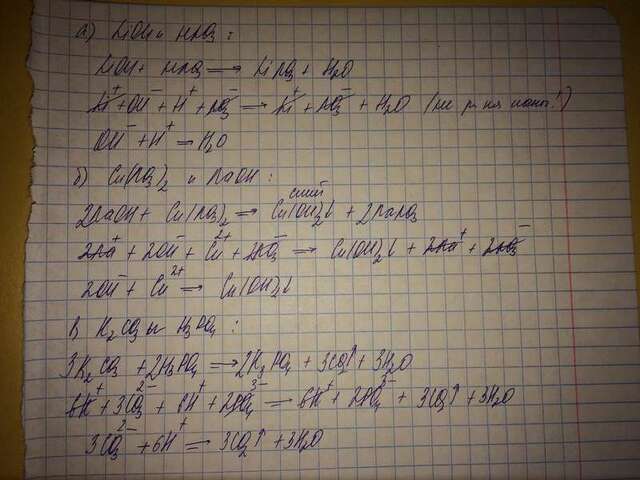 а) LiOH и HNO₃ :
LiOH + HNO₃ ⟶ LiNO₃ + H₂O
Li⁺ + OH⁻ + H⁺ + NO₃⁻ ⟶ Li⁺ + NO₃⁻ + H₂O
OH⁻ + H⁺ ⟶ H₂O
б) Cu(NO₃)₂ и NaOH :
синий
2NaOH + Cu(NO₃)₂ ⟶ Cu(OH)₂↓ + 2NaNO₃
2Na⁺ + 2OH⁻ + Cu²⁺ + 2NO₃⁻ ⟶ Cu(OH)₂↓ + 2Na⁺ + 2NO₃⁻
2OH⁻ + Cu²⁺ ⟶ Cu(OH)₂↓
в K₂CO₃ и H₃PO₄ :
3K₂CO₃ + 2H₃PO₄ ⟶ 2K₃PO₄ + 3CO₂↑ + 3H₂O
6K⁺ + 3CO₃²⁻ + 6H⁺ + 2PO₄³⁻ ⟶ 6K⁺ + 2PO₄³⁻ + 3CO₂↑ + 3H₂O
3CO₃²⁻ + 6H⁺ ⟶ 3CO₂↑ + 3H₂O